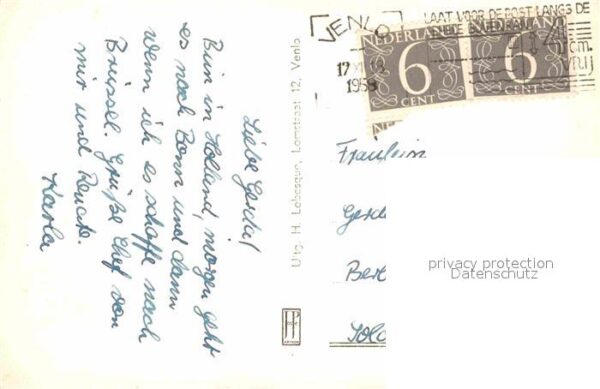 Liebe Gerda!
Bin in Holland, morgen geht
es nach Bonn und dann
wenn ich es schaffe nach
Brüssel. Grüße Chef von
mir und
Karla
Uitg. H. Lobesgun, Lomstraat 12, Venlo
VENLO
17 XI
1958
LAAT VOOR DE POST LANGS DE
NEDERLAND NEDERLAND
6 6
CENT CENT
Fräulein
privacy protection
Datenschutz